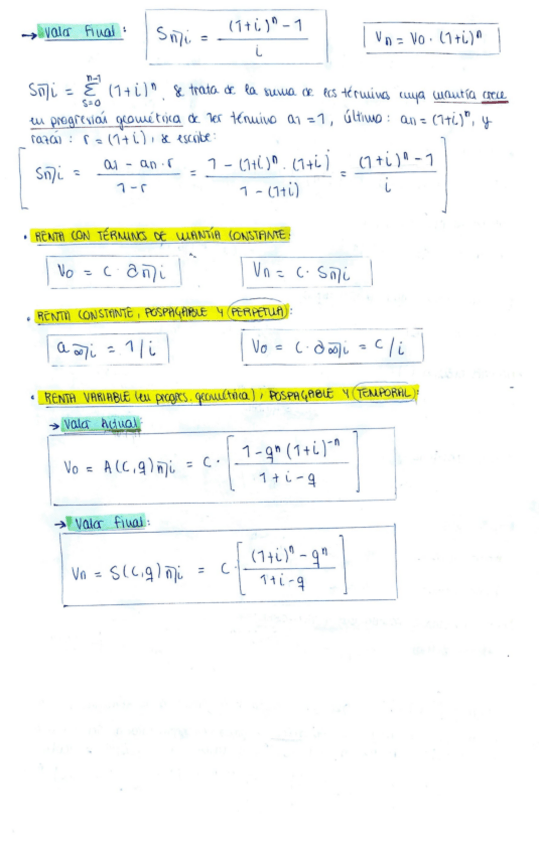 → Valor Final: S n̅|i = (1+i)ⁿ - 1 / i    Vn = Vo · (1+i)ⁿ
S n̅|i = Σ (s=0, n-1) (1+i)ⁿ, se trata de la suma de los términos cuya cuantía crece
en progresión geométrica de 1er término a1 = 1, último: an = (1+i)ⁿ, y
razón: r = (1+i), se escribe:
S n̅|i = a1 - an · r / 1 - r = 1 - (1+i)ⁿ · (1+i) / 1 - (1+i) = (1+i)ⁿ - 1 / i
· RENTA CON TÉRMINOS DE CUANTÍA CONSTANTE:
Vo = C · a n̅|i    Vn = C · S n̅|i
· RENTA CONSTANTE, POSPAGABLE Y (PERPETUA):
a ∞̅|i = 1/i    Vo = C · a ∞̅|i = C/i
· RENTA VARIABLE (en progres. geométrica), POSPAGABLE Y (TEMPORAL):
→ Valor Actual:
Vo = A(C,q) n̅|i = C · [1 - qⁿ (1+i)⁻ⁿ / 1 + i - q]
→ Valor Final:
Vn = S(C,q) n̅|i = C · [(1+i)ⁿ - qⁿ / 1 + i - q]